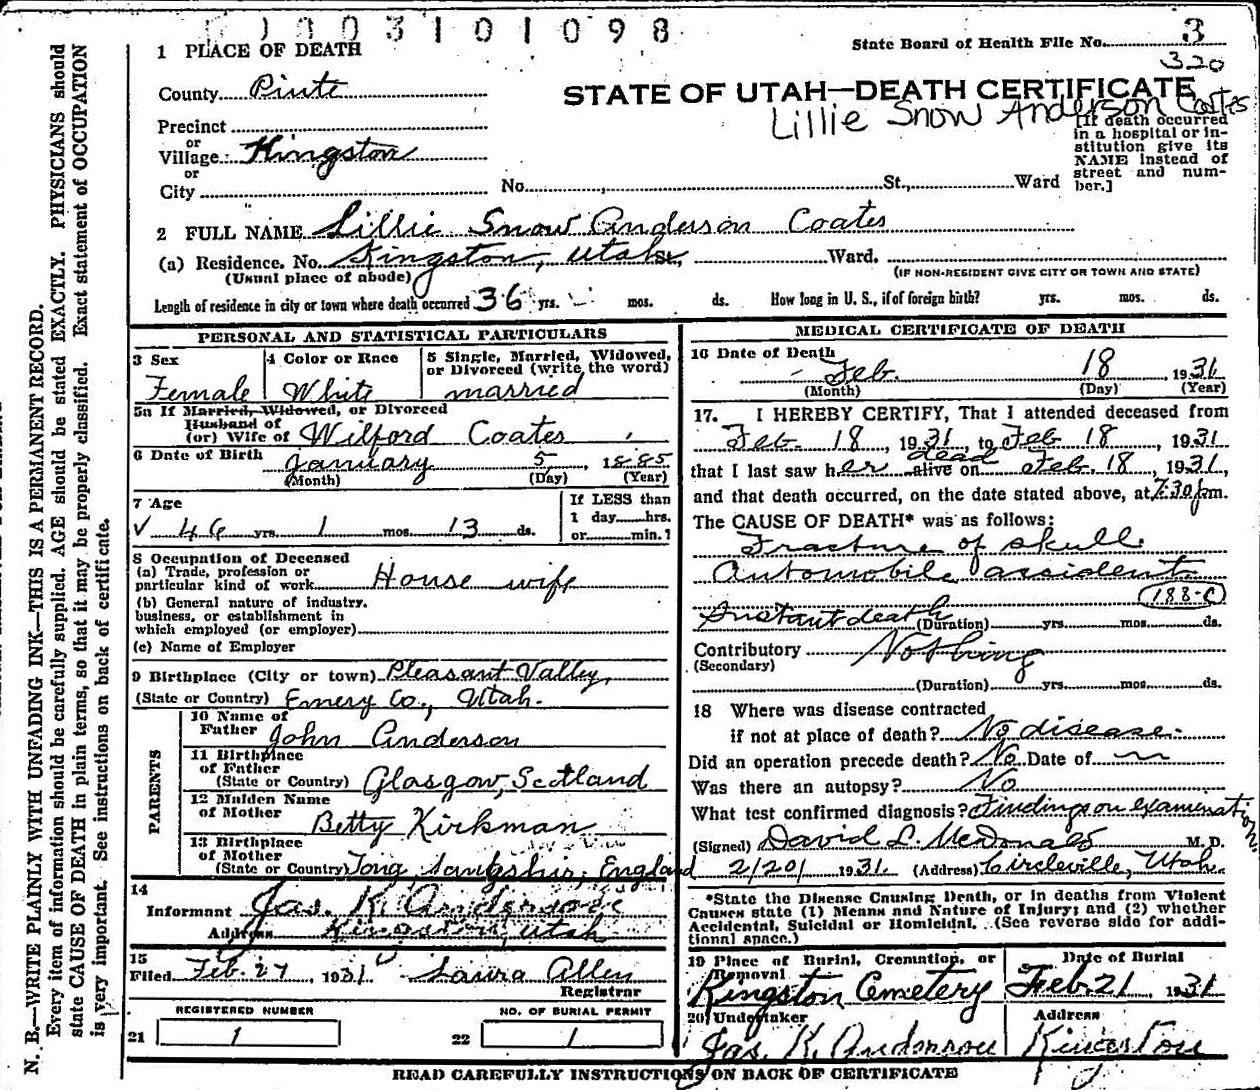 1003101098
State Board of Health File No. 3
320
1 PLACE OF DEATH
County Piute
STATE OF UTAH—DEATH CERTIFICATE
Lillie Snow Anderson Coates
Precinct
or
Village Kingston
or
City
No. , St., Ward
[If death occurred
in a hospital or in-
stitution give its
NAME instead of
street and num-
ber.]
2 FULL NAME Lillie Snow Anderson Coates
(a) Residence. No. Kingston, Utah St., Ward.
(Usual place of abode)
(IF NON-RESIDENT GIVE CITY OR TOWN AND STATE)
Length of residence in city or town where death occurred 36 yrs. mos. ds. How long in U. S., if of foreign birth? yrs. mos. ds.
PERSONAL AND STATISTICAL PARTICULARS
3 Sex
Female
4 Color or Race
White
5 Single, Married, Widowed,
or Divorced (write the word)
married
5a If Married, Widowed, or Divorced
Husband of
(or) Wife of Wilford Coates
6 Date of Birth January 5, 1885
(Month) (Day) (Year)
7 Age
46 yrs. 1 mos. 13 ds.
If LESS than
1 day hrs.
or min.?
8 Occupation of Deceased
(a) Trade, profession or
particular kind of work House wife
(b) General nature of industry,
business, or establishment in
which employed (or employer)
(c) Name of Employer
9 Birthplace (City or town) Pleasant Valley,
(State or Country) Emery Co., Utah.
PARENTS
10 Name of
Father John Anderson
11 Birthplace
of Father
(State or Country) Glasgow, Scotland
12 Maiden Name
of Mother Betty Kirkman
13 Birthplace
of Mother
(State or Country) Tong, England
14
Informant Jas. K. Anderson
Address Kingston, Utah
15
Filed Feb. 27, 1931 Laura Allen
Registrar
REGISTERED NUMBER
21 1
NO. OF BURIAL PERMIT
22 1
MEDICAL CERTIFICATE OF DEATH
16 Date of Death
Feb. 18 1931
(Month) (Day) (Year)
17. I HEREBY CERTIFY, That I attended deceased from
Feb. 18, 1931, to Feb 18, 1931
that I last saw her alive on dead Feb. 18, 1931,
and that death occurred, on the date stated above, at 7:30 p m.
The CAUSE OF DEATH* was as follows:
Fracture of skull
Automobile accident
(188-C)
Instant death (Duration) yrs. mos. ds.
Contributory Nothing
(Secondary)
(Duration) yrs. mos. ds.
18 Where was disease contracted
if not at place of death? No disease.
Did an operation precede death? No Date of
Was there an autopsy? No
What test confirmed diagnosis? Findings on examination
(Signed) David L. McDonald M. D.
2/20/1931. (Address) Circleville, Utah.
*State the Disease Causing Death, or in deaths from Violent
Causes state (1) Means and Nature of Injury; and (2) whether
Accidental, Suicidal or Homicidal. (See reverse side for addi-
tional space.)
19 Place of Burial, Cremation, or
Removal
Kingston Cemetery
Date of Burial
Feb. 21, 1931
20 Undertaker
Jas. K. Anderson
Address
Kingston
READ CAREFULLY INSTRUCTIONS ON BACK OF CERTIFICATE
N. B.—WRITE PLAINLY WITH UNFADING INK—THIS IS A PERMANENT RECORD.
Every item of information should be carefully supplied. AGE should be stated EXACTLY. PHYSICIANS should
state CAUSE OF DEATH in plain terms, so that it may be properly classified. Exact statement of OCCUPATION
is very important. See instructions on back of certificate.